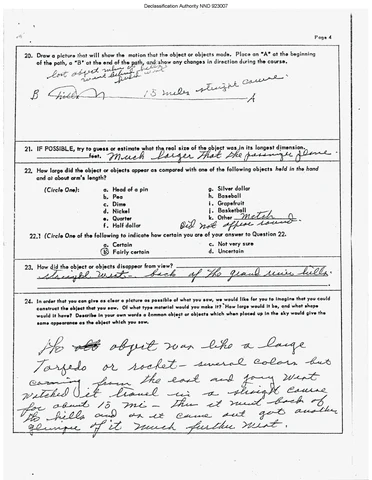 Declassification Authority NND 923007
Page 4
20. Draw a picture that will show the motion that the object or objects made. Place an "A" at the beginning
of the path, a "B" at the end of the path, and show any changes in direction during the course.
lost object when it
went behind
B hills 15 miles straight course
A
21. IF POSSIBLE, try to guess or estimate what the real size of the object was in its longest dimension.
feet. Much larger that the passenger plane.
22. How large did the object or objects appear as compared with one of the following objects held in the hand
and at about arm's length?
(Circle One): a. Head of a pin g. Silver dollar
b. Pea h. Baseball
c. Dime i. Grapefruit
d. Nickel j. Basketball
e. Quarter k. Other
f. Half dollar Did not appear round
22.1 (Circle One of the following to indicate how certain you are of your answer to Question 22.
a. Certain c. Not very sure
b. Fairly certain d. Uncertain
23. How did the object or objects disappear from view?
straight West - back of the grand river hills.
24. In order that you can give as clear a picture as possible of what you saw, we would like for you to imagine that you could
construct the object that you saw. Of what type material would you make it? How large would it be, and what shape
would it have? Describe in your own words a common object or objects which when placed up in the sky would give the
same appearance as the object which you saw.
The object was like a large
Torpedo or rocket - several colors but
coming from the east and going West
Watched it travel in a straight course
for about 15 mi - then it went back of
the hills and as it came out got another
glimpse of it much further West.